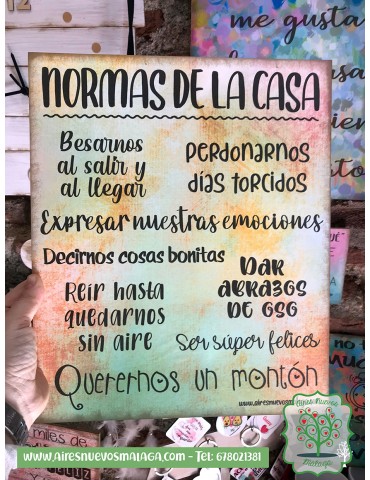 12
me gusta
NORMAS DE LA CASA
Besarnos
al salir y
al llegar
Perdonarnos
días torcidos
Expresar nuestras emociones
Decirnos cosas bonitas
Reír hasta
quedarnos
sin aire
DAR
ABRAZOS
DE OSO
Ser súper felices
Querernos un montón
www.airesnuevosm
miles de
www.airesnuevosmalaga.com - Tel: 678021381
Aires Nuevos
Málaga